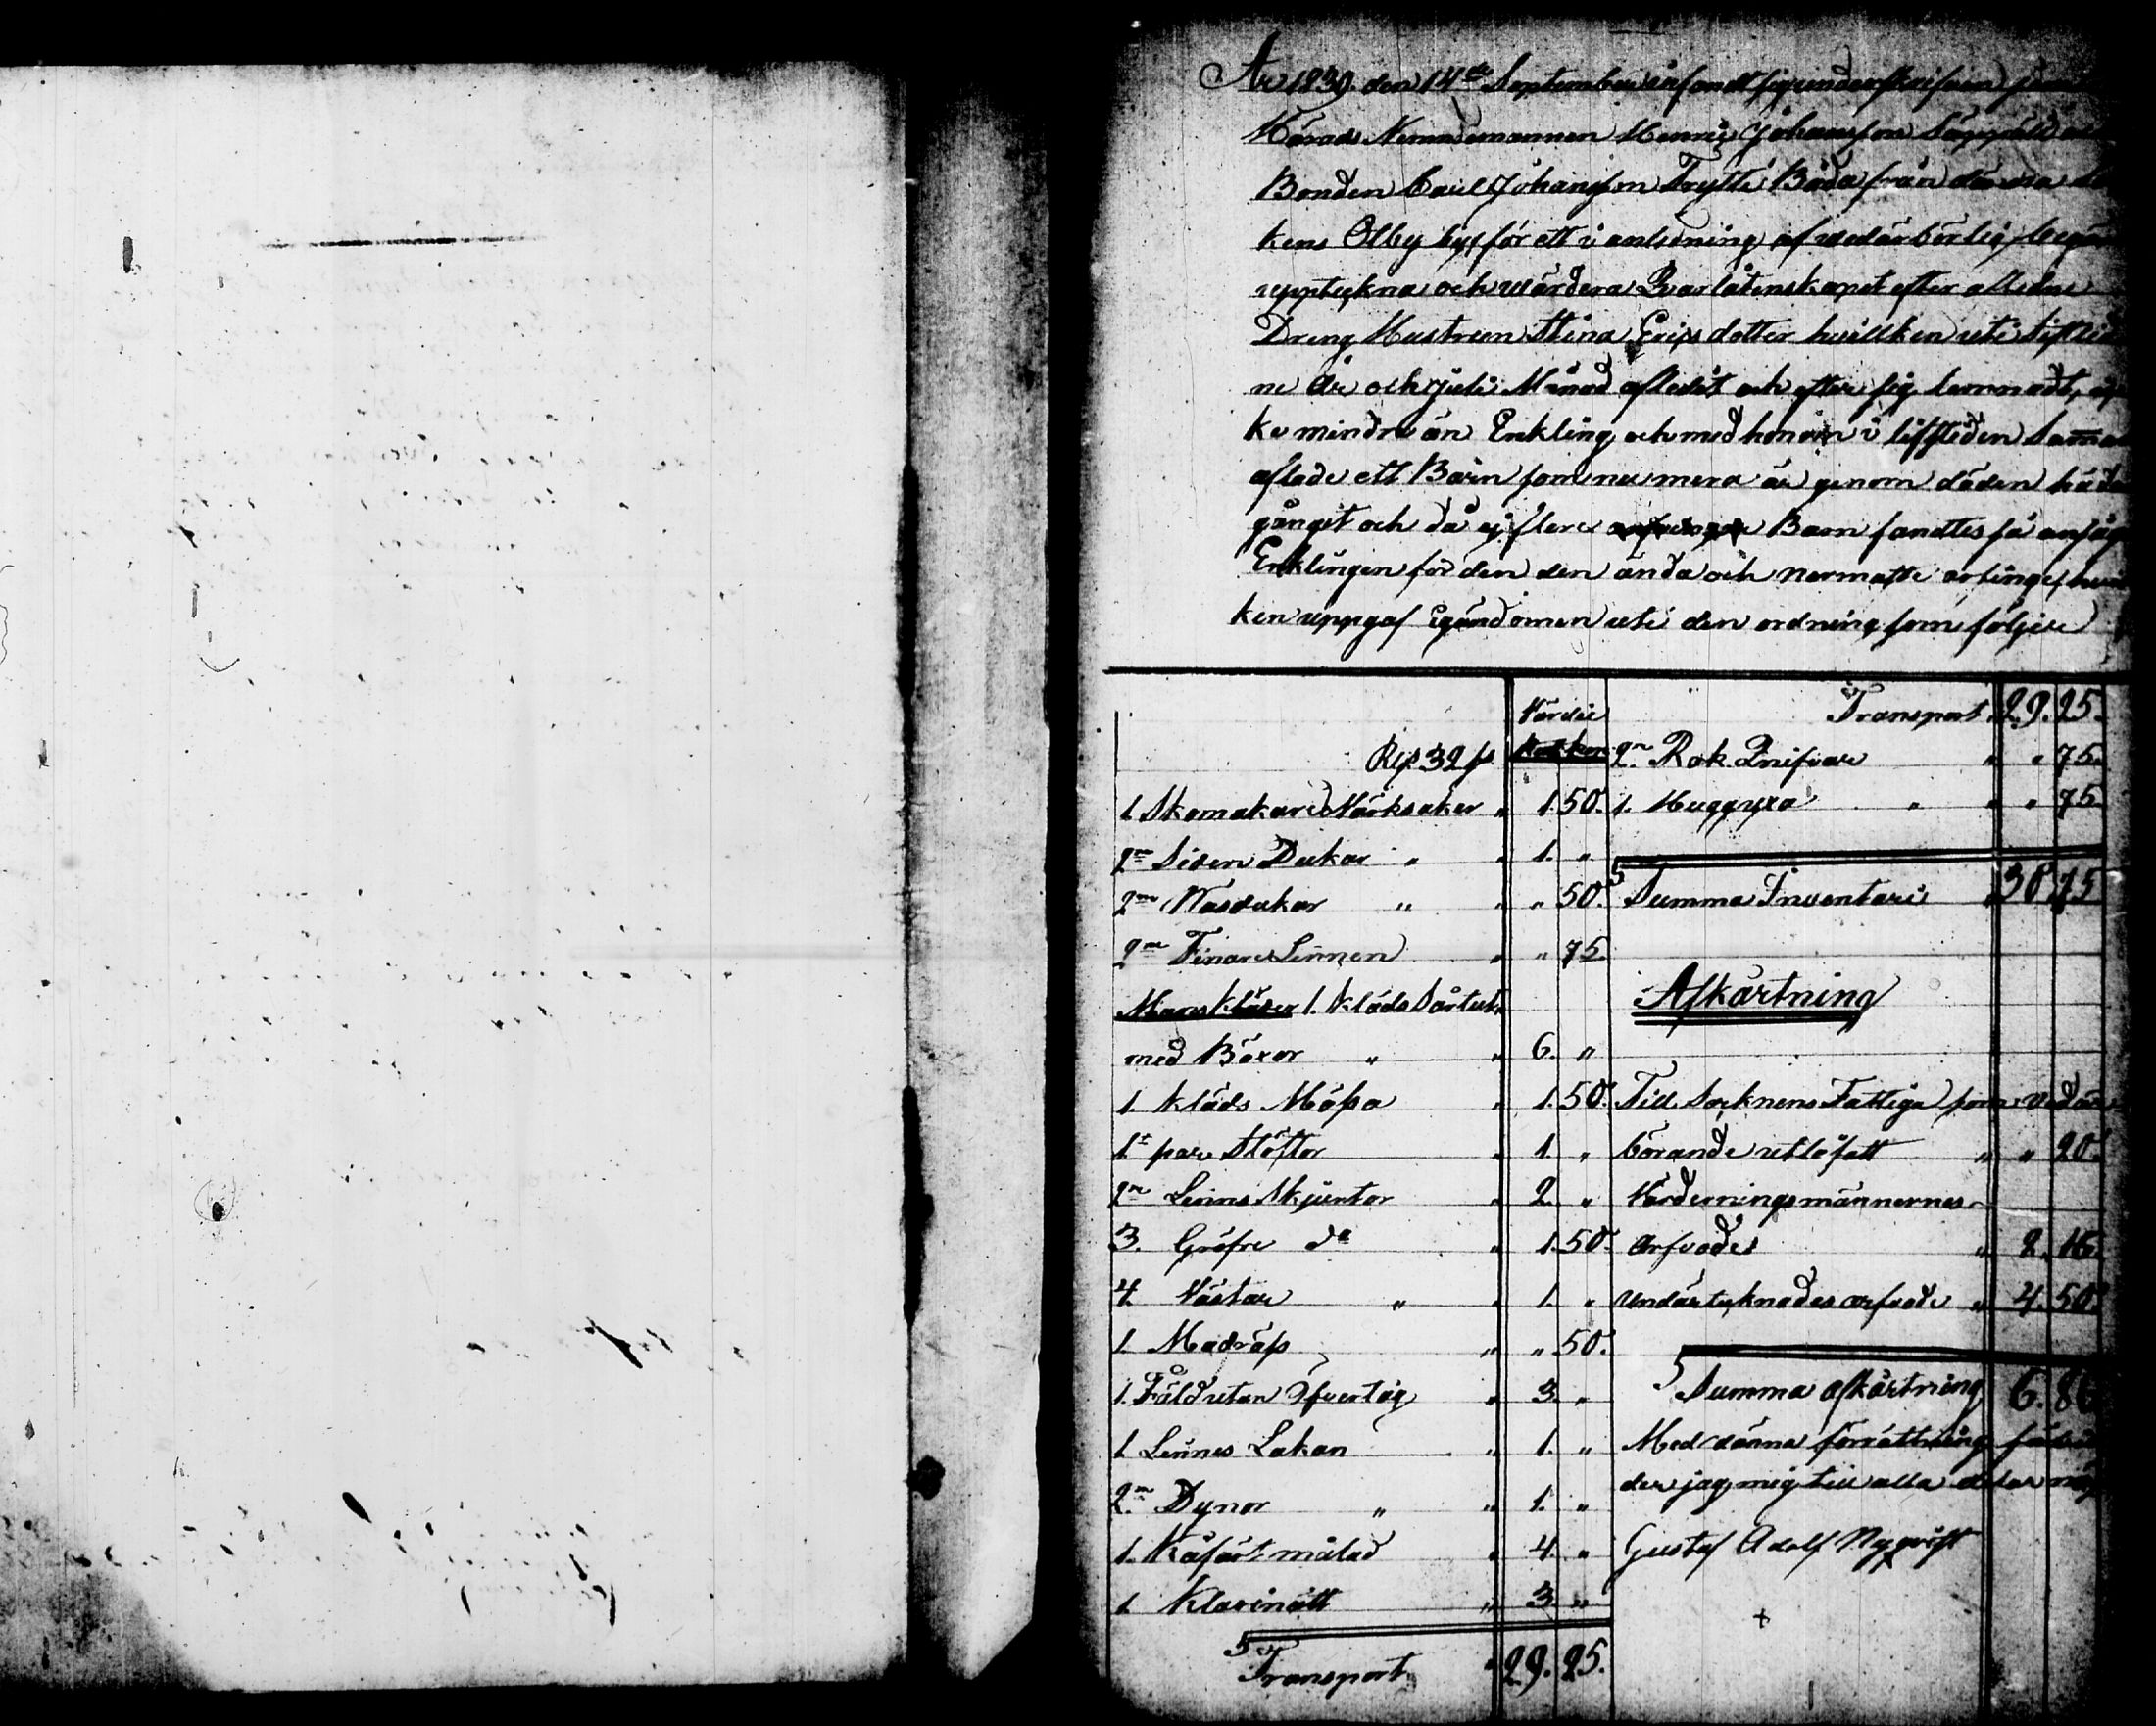 År 1839. den 14de September infandt sig undershrifven jemte
Härads Nemndemannen Henric Johansson Säppäld
Bonden Carl Johansson Frytte Båda från dänna
kens Ölby by, för att i anledning af vedärbörlig begär
upptekna och värdera Qvarlåtenskapet efter aflidne
Dreng Hustrun Stina Ericsdotter hvillken uti sistlid
ne År och Juli Månad aflidit och efter sig lemnadt,
ke mindre än Enkling och med honom i lifstiden Samman
aflade ett Barn som nu mera är genom döden hädan
gånget och då ej flere Barn fandtes så ansågs
Enklingen för den den ända och nermaste arfinge, hvill
ken uppgaf Egendomen uti den ordning som följer
Värdie
Rsp 32 s.
1. Skomakare Värksaker " 1. 50.
2ne Siden Dukar " " 1. "
2ne Näsdukar " " " 50.
2ne Finare Linnen " " 75.
Mans Kläder 1. Kläds Sörtut
med Böxor " " 6. "
1. Kläds Mössa " 1. 50.
1t par Stöflor " 1. "
2ne Linnes Skjuntor " 2. "
3. Gröfre do " 1. 50.
4. Västar " " 1. "
1 Madrass " " 50.
1. Fäld utan Öfvertåg " 3. "
1 Linnes Lakan " 1. "
2ne Dynor " " 1. "
1. Kåfärt målad " 4. "
1 Klarinätt " 3. "
Transport " 29. 25.
Transport " 29. 25.
2ne Rak Knifvar " " 75.
1. Huggyxa " " " 75.
Summa Inventari " 30. 75
Afkårtning
Till Soknens Fattiga som vedär
börande utlåfatt " " 20.
Värderingsmännernes
Arfvode " 2. 16
Undärteknades arfvode " 4. 50.
Summa afkårtning 6. 86
Med dänna förrättning förbin
der jag mig till alla delar nöj
Gustaf Adolf Nyqvist
+